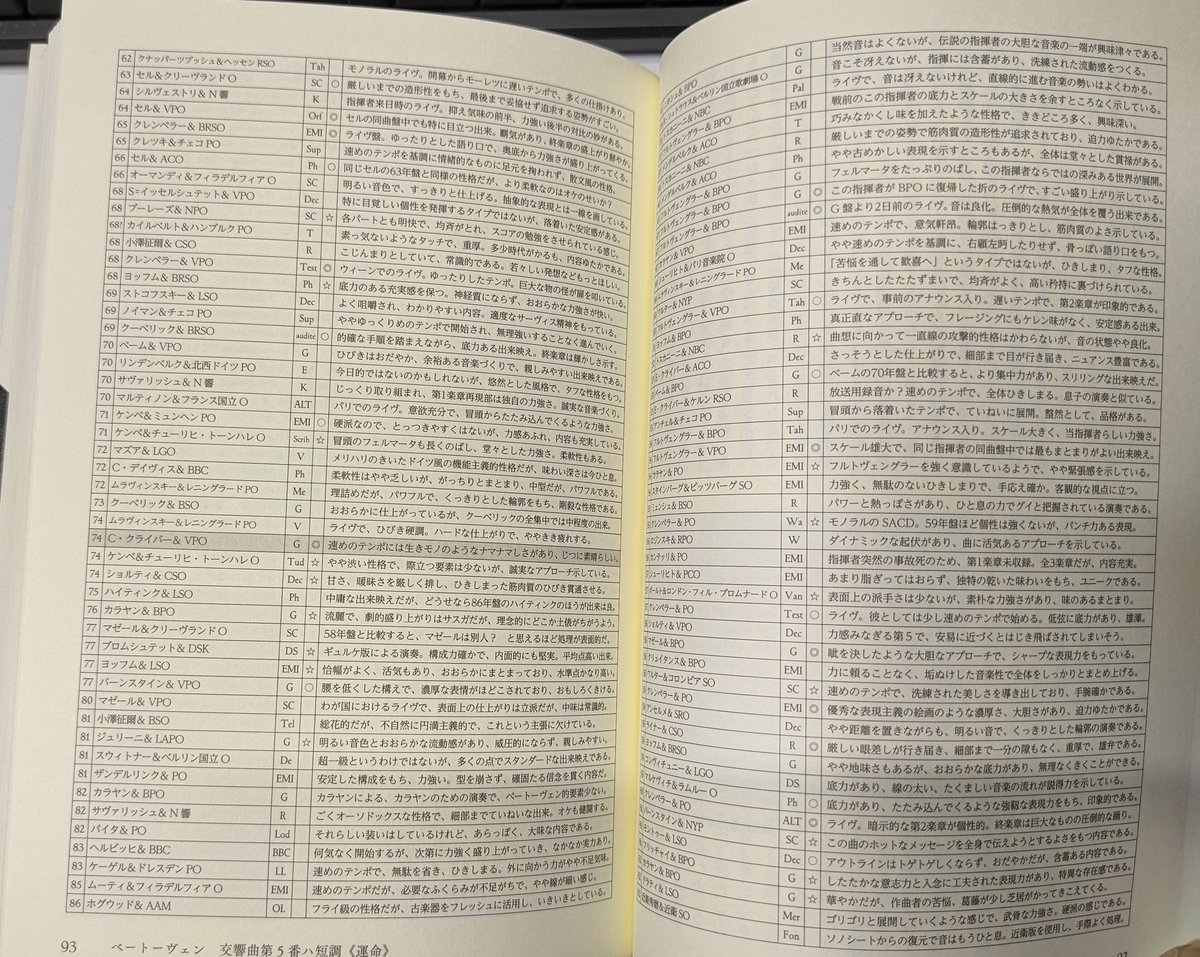 62 クナッパーツブッシュ&ヘッセンRSO Tah モノラルのライヴ。開幕からモーレツに遅いテンポで、多くの仕掛けあり。
63 セル&クリーヴランドO SC ○ 厳しいまでの造形性をもち、最後まで妥協せず追求する姿勢がすごい。
64 シルヴェストリ&N響 K 指揮者来日時のライヴ。抑え気味の前半、力強い後半の対比の妙がある。
64 セル&VPO Orf ◎ セルの同曲盤中でも特に目立つ出来。覇気があり、終楽章の盛上がり鮮やか。
65 クレンペラー&BRSO EMI ◎ ライヴ盤。ゆったりとした語り口で、奥底から力強さが盛り上がってくる。
65 クレツキ&チェコPO Sup 速めのテンポを基調に情緒的なものに足元を掬われず、散文風の性格。
66 セル&ACO Ph ○ 同じセルの63年盤と同様の性格だが、より柔軟なのはオケのせいか?
66 オーマンディ&フィラデルフィアO SC 明るい音色で、すっきりと仕上げる。抽象的な表現とは一線を画している。
68 S=イッセルシュテット&VPO Dec 特に目覚しい個性を発揮するタイプではないが、落着いた安定感がある。
68 ブーレーズ&NPO SC ☆ 各パートとも明快で、均斉がとれ、スコアの勉強をさせられている感じ。
68? カイルベルト&ハンブルクPO T 素っ気ないようなタッチで、重厚。多少時代がかるも、内容ゆたかである。
68 小澤征爾&CSO R こじんまりとしていて、常識的である。若々しい発想などもっとほしい。
68 クレンペラー&VPO Test ◎ ウィーンでのライヴ。ゆったりしたテンポ。巨大な物の怪が扉を叩いている。
68 ヨッフム&BRSO Ph ☆ 底力のある充実感を保つ。神経質にならず、おおらかな力強さが快い。
69 ストコフスキー&LSO Dec よく咀嚼され、わかりやすい内容。適度なサーヴィス精神をもっている。
69 ノイマン&チェコPO Sup ややゆっくりめのテンポで開始され、無理強いすることなく進んでいく。
69 クーベリック&BRSO audite ○ 的確な手順を踏まえながら、底力ある出来映え。終楽章は輝かしさ示す。
70 ベーム&VPO G ひびきはおだやか、余裕ある音楽づくりで、親しみやすい出来映えである。
70 リンデンベルク&北西ドイツPO E 今日的ではないのかもしれないが、悠然とした風格で、タフな性格をもつ。
70 サヴァリッシュ&N響 K じっくり取り組まれ、第1楽章再現部は独自の力強さ。誠実な音楽づくり。
70 マルティノン&フランス国立O ALT パリでのライヴ。意欲充分で、冒頭からたたみ込んでくるような力強さ。
71 ケンペ&ミュンヘンPO EMI ○ 硬派なので、とっつきやすくはないが、力感あふれ、内容も充実している。
71 ケンペ&チューリヒ・トーンハレO Scrib ☆ 冒頭のフェルマータも長くのばし、堂々とした力強さ。柔軟性もある。
72 マズア&LGO V メリハリのきいたドイツ風の機能主義的性格だが、味わい深さは今ひと息。
72 C・デイヴィス&BBC Ph 柔軟性はやや乏しいが、がっちりとまとまり、中型だが、パワフルである。
72 ムラヴィンスキー&レニングラードPO Me 理詰めだが、パワフルで、くっきりとした輪郭をもち、剛毅な性格である。
73 クーベリック&BSO G おおらかに仕上がっているが、クーベリックの全集中では中程度の出来。
74 ムラヴィンスキー&レニングラードPO V ライヴで、ひびき硬調。ハードな仕上がりで、ややきき疲れする。
74 C・クライバー&VPO G ◎ 速めのテンポには生きモノのようなナマナマしさがあり、じつに素晴らしい。
74 ケンペ&チューリヒ・トーンハレO Tud ☆ やや渋い性格で、際立つ要素は少ないが、誠実なアプローチ示している。
74 ショルティ&CSO Dec ☆ 甘さ、曖昧さを厳しく排し、ひきしまった筋肉質のひびき貫通させる。
75 ハイティンク&LSO Ph 中庸な出来映えだが、どうせなら86年盤のハイティンクのほうが出来は良。
76 カラヤン&BPO G ☆ 流麗で、劇的盛り上がりはサスガだが、理念的にどこか上俵がちがうよう。
77 マゼール&クリーヴランドO SC 58年盤と比較すると、マゼールは別人? と思えるほど処理が表面的だ。
77 ブロムシュテット&DSK DS ☆ ギュルケ版による演奏。構成力確かで、内面的にも堅実。平均点高い出来。
77 ヨッフム&LSO EMI ☆ 恰幅がよく、活気もあり、おおらかにまとまっており、水準点かなり高い。
77 バーンスタイン&VPO G ○ 腰を低くした構えで、濃厚な表情がほどこされており、おもしろくきける。
80 マゼール&VPO SC わが国におけるライヴで、表面上の仕上がりは立派だが、中味は常識的。
81 小澤征爾&BSO Tel 総花的だが、不自然に円満主義的で、これという主張に欠けている。
81 ジュリーニ&LAPO G ☆ 明るい音色とおおらかな流動感があり、威圧的にならず、親しみやすい。
81 スウィトナー&ベルリン国立O De 超一級というわけではないが、多くの点でスタンダードな出来映えである。
81 ザンデルリンク&PO EMI 安定した構成をもち、力強い。型を崩さず、確固たる信念を貫く内容だ。
82 カラヤン&BPO G カラヤンによる、カラヤンのための演奏で、ベートーヴェン的要素少ない。
82 サヴァリッシュ&N響 R ごくオーソドックスな性格で、細部までていねいな出来。オケも健闘する。
82 パイタ&PO Lod それらしい装いはしているけれど、あらっぽく、大味な内容である。
83 ヘルビッヒ&BBC BBC 何気なく開始するが、次第に力強く盛り上がっていき、なかなか実力あり。
83 ケーゲル&ドレスデンPO LL 速めのテンポで、無駄を省き、ひきしまる。外に向かう力がやや不足気味。
85 ムーティ&フィラデルフィアO EMI 速めのテンポだが、必要なふくらみが不足がちで、やや線が細い感じ。
86 ホグウッド&AAM OL フライ級の性格だが、古楽器をフレッシュに活用し、いきいきとしている。
93 ベートーヴェン 交響曲第5番ハ短調《運命》
キシュ&BPO G 当然音はよくないが、伝説の指揮者の大胆な音楽の一端が興味津々である。
シュトラウス&ベルリン国立歌劇場O G 音こそ冴えないが、指揮には含蓄があり、洗練された流動感をつくる。
スカニーニ&NBC Pal ライヴで、音は冴えないけれど、直線的に進む音楽の勢いはよくわかる。
ルトヴェングラー&BPO EMI 戦前のこの指揮者の底力とスケールの大きさを余すところなく示している。
ンゲルベルク&ACO T 巧みなかくし味を加えたような性格で、ききどころ多く、興味深い。
スカニーニ&NBC R 厳しいまでの姿勢で筋肉質の造形性が追求されており、迫力ゆたかである。
ンゲルベルク&ACO Ph やや古めかしい表現を示すところもあるが、全体は堂々とした貫禄がある。
ルトヴェングラー&BPO G フェルマータをたっぷりのばし、この指揮者ならではの深みある世界が展開。
フルトヴェングラー&BPO G ◎ この指揮者がBPOに復帰した折のライヴで、すごい盛り上がり示す。
フルトヴェングラー&BPO audite ◎ G盤より2日前のライヴ。音は良化。圧倒的な熱気が全体を覆う出来である。
カラヤン&VPO EMI 速めのテンポで、意気軒昂。輪郭はっきりとし、筋肉質のよさ示している。
シューリヒト&パリ音楽院O Dec やや速めのテンポを基調に、右顧左眄したりせず、骨っぽい語り口をもつ。
ムラヴィンスキー&レニングラードPO Me 「苦悩を通して歓喜へ」というタイプではないが、ひきしまり、タフな性格。
ワルター&NYP SC きちんとしたたたずまいで、均斉がよく、高い矜持に裏づけられている。
フルトヴェングラー&VPO Tah ○ ライヴで、事前のアナウンス入り。遅いテンポで、第2楽章が印象的である。
ヨッフム&BPO Ph 真正直なアプローチで、フレージングにもケレン味がなく、安定感ある出来。
トスカニーニ&NBC R ☆ 曲想に向かって一直線の攻撃的性格はかわらないが、音の状態やや良化。
E・クライバー&ACO Dec さっそうとした仕上がりで、細部まで目が行き届き、ニュアンス豊富である。
ベーム&BPO G ○ ベームの70年盤と比較すると、より集中力があり、スリリングな出来映えだ。
E・クライバー&ケルンRSO R 放送用録音か?速めのテンポで、全体ひきしまる。息子の演奏と似ている。
アンチェル&チェコPO Sup 冒頭から落着いたテンポで、ていねいに展開。整然として、品格がある。
フルトヴェングラー&BPO Tah パリでのライヴ。アナウンス入り。スケール大きく、当指揮者らしい力強さ。
フルトヴェングラー&VPO EMI ◎ スケール雄大で、同じ指揮者の同曲盤中では最もまとまりがよい出来映え。
カラヤン&PO EMI ☆ フルトヴェングラーを強く意識しているようで、やや緊張感を示している。
スタインバーグ&ピッツバーグSO EMI 力強く、無駄のないひきしまりで、手応え確か。客観的な視点に立つ。
ミュンシュ&BSO R パワーと熱っぽさがあり、ひと息の力でグイと把握されている演奏である。
クレンペラー&PO Wa ☆ モノラルのSACD。59年盤ほど個性は強くないが、パンチ力ある表現。
ロジンスキ&RPO W ダイナミックな起伏があり、曲に活気あるアプローチを示している。
カンテッリ&PO EMI 指揮者突然の事故死のため、第1楽章未収録。全3楽章だが、内容充実。
シューリヒト&PCO EMI あまり脂ぎってはおらず、独特の乾いた味わいをもち、ユニークである。
ボールト&ロンドン・フィル・プロムナードO Van ☆ 表面上の派手さは少ないが、素朴な力強さがあり、味のあるまとまり。
クレンペラー&PO Test ○ ライヴ。彼としては少し速めのテンポで始める。低弦に底力があり、雄渾。
ショルティ&VPO Dec 力感みなぎる第5で、安易に近づくとはじき飛ばされてしまいそう。
マゼール&BPO G ◎ 眦を決したような大胆なアプローチで、シャープな表現力をもっている。
クリュイタンス&BPO EMI 力に頼ることなく、垢ぬけした音楽性で全体をしっかりとまとめ上げる。
ワルター&コロンビアSO SC ☆ 速めのテンポで、洗練された美しさを導き出しており、手腕確かである。
クレンペラー&PO EMI ◎ 優秀な表現主義の絵画のような濃厚さ、大胆さがあり、迫力ゆたかである。
アンセルメ&SRO Dec やや距離を置きながらも、明るい音で、くっきりとした輪郭の演奏である。
ライナー&CSO R ◎ 厳しい眼差しが行き届き、細部まで一分の隙もなく、重厚で、雄弁である。
ヨッフム&BRSO G やや地味さもあるが、おおらかな底力があり、無理なくきくことができる。
コンヴィチュニー&LGO DS 底力があり、線の太い、たくましい音楽の流れが説得力を示している。
マルケヴィチ&ラムルーO Ph ○ 底力があり、たたみ込んでくるような強靭な表現力をもち、印象的である。
クレンペラー&PO ALT ◎ ライヴ。暗示的な第2楽章が個性的。終楽章は巨大なものの圧倒的な踊り。
バーンスタイン&NYP SC ☆ この曲のホットなメッセージを全身で伝えようとするよさをもつ内容である。
モントゥー&LSO Dec ○ アウトラインはトゲトゲしくならず、おだやかだが、含蓄ある内容である。
フリッチャイ&BPO G ☆ したたかな意志力と入念に工夫された表現力があり、特異な存在感である。
カラヤン&BPO G ☆ 華やかだが、作曲者の苦悩、葛藤が少し芝居がかってきこえてくる。
ドラティ&LSO Mer ゴリゴリと展開していくような感じで、武骨な力強さ。硬派の感じである。
近衛秀麿&近衛SO Fon ソノシートからの復元で音はもうひと息。近衛版を使用し、手際よく処理。
92